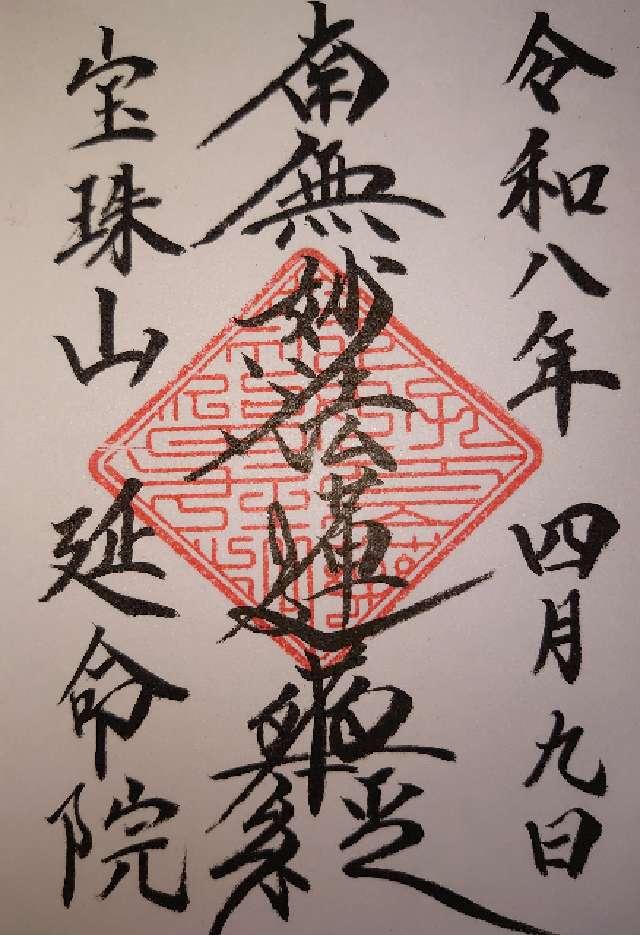 令和八年 四月九日
南無妙法蓮華経
宝珠山 延命院